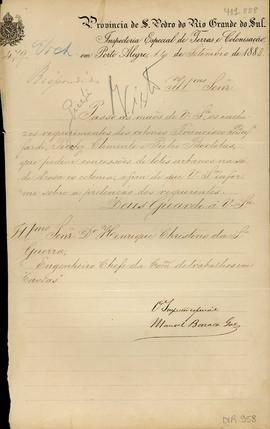 401.888
Provincia de S. Pedro do Rio Grande do Sul.
Inspectoria Especial de Terras e Colonisação,
em Porto Alegre, 14 de Setembro de 1882
Visto
Illmo Senr
Passo ás mãos de V. Sª os inclu
zos requerimentos dos colonos Francisco
Clemente e Pedro
que pedem concessões de lotes urbanos na sé
de dessa ex colonia, afim de que V. Sª infor
me sobre a pretenção dos requerentes.
Deus Guarde á V. Sª
Illmo Senr Dr Henrique Christino da Sª
Guerra,
Engenheiro Chefe da Com de trabalhos em
Caxias
O Inspector especial
Manoel
DIR 958